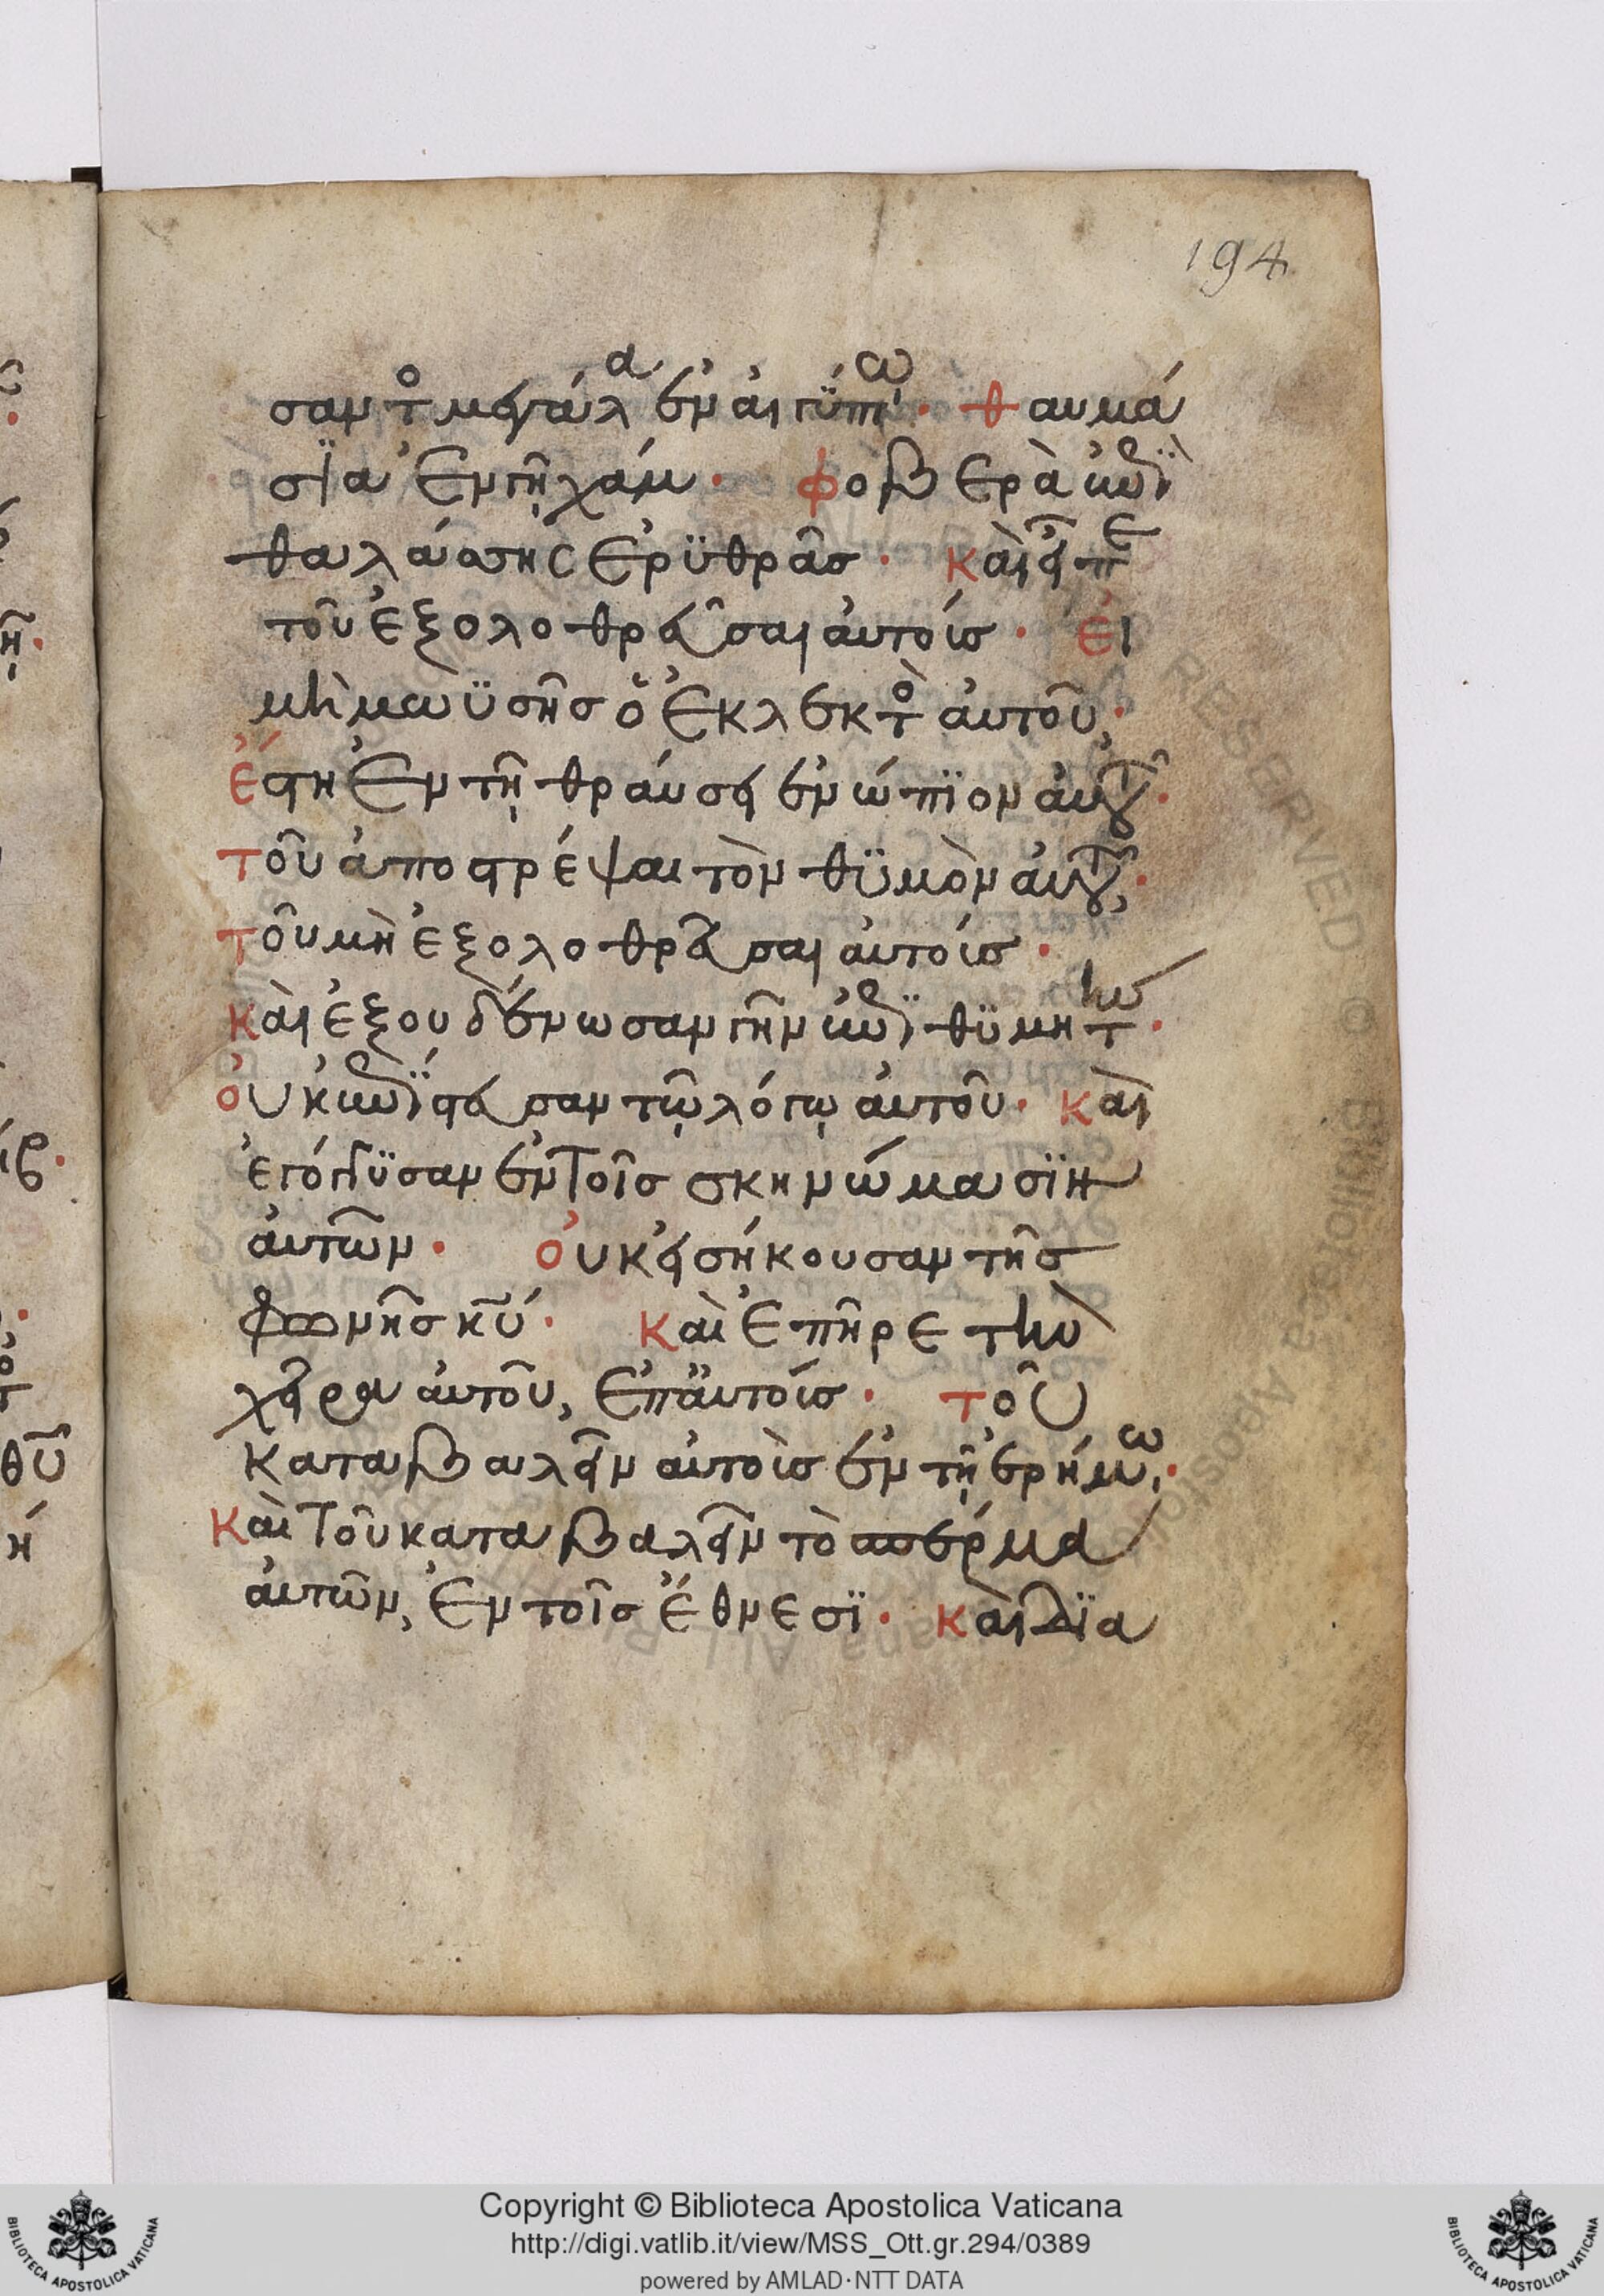 194
σαντ(ος) μεγάλα ἐν αἰγύπτω· θαυμά
σϊα ἐν γῆ χάμ· φοβερὰ ἐπῒ
θαλάσσης ἐρϋθρᾶσ· καὶ εἶπε
τοῦ ἐξολοθρεῦσαι ἀυτοὶσ· εἰ
μὴ μωϋσῆσ ὁ ἐκλεκτὸ ἀυτοῦ,
ἔστη ἐν τῆ θράυσει ἐνώπϊον ἀυτοῦ·
τοῦ ἀποστρέψαι τὸν θϋμὸν ἀυτοῦ,·
τοῦ μὴ ἐξολοθρεῦσαι ἀυτοὶσ·
καὶ ἐξουδένωσαν γῆν ἐπϊθϋμητήν·
ὀυκ ἐπΐστευσαν τῶ λόγω ἀυτοῦ· καὶ
ἐγόγγϋσαν ἐν τοῖσ σκηνώμασϊν
ἀυτῶν· ὀυκ εἰσήκουσαν τῆσ
φωνῆσ κῦ· καὶ ἐπῆρε τὴν
χεῖρα ἀυτοῦ, ἐπἀυτοὶσ· τοῦ
καταβαλεῖν ἀυτοὶσ ἐν τῆ ἐρήμω,·
καὶ τοῦ καταβαλεῖν τὸ σπέρμα
ἀυτῶν, ἐν τοῖσ ἔθνεσϊ· καὶ δϊα
RESERVED © Biblioteca Apostolica Vaticana ALL RI
Copyright © Biblioteca Apostolica Vaticana
http://digi.vatlib.it/view/MSS_Ott.gr.294/0389
powered by AMLAD·NTT DATA
BIBLIOTECA APOSTOLICA VATICANA
BIBLIOTECA APOSTOLICA VATICANA